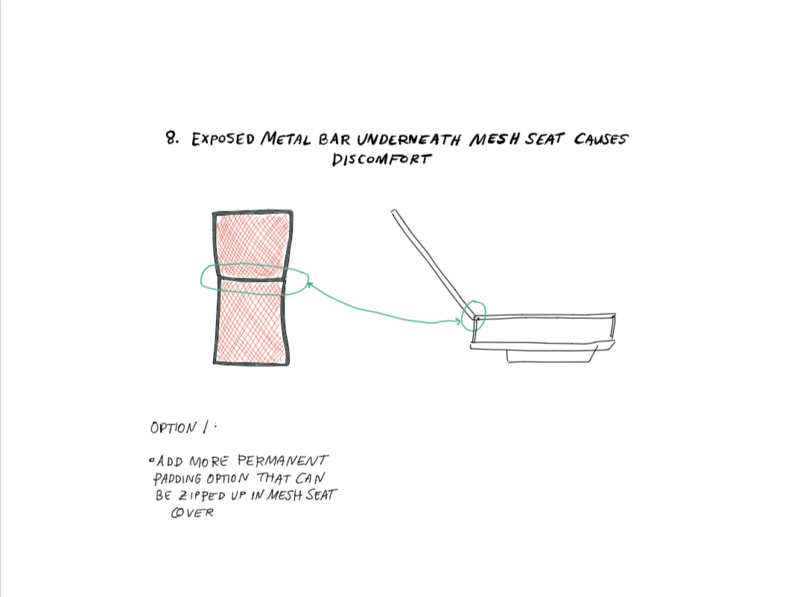 8. EXPOSED METAL BAR UNDERNEATH MESH SEAT CAUSES
DISCOMFORT
OPTION 1:
•ADD MORE PERMANENT
PADDING OPTION THAT CAN
BE ZIPPED UP IN MESH SEAT
COVER